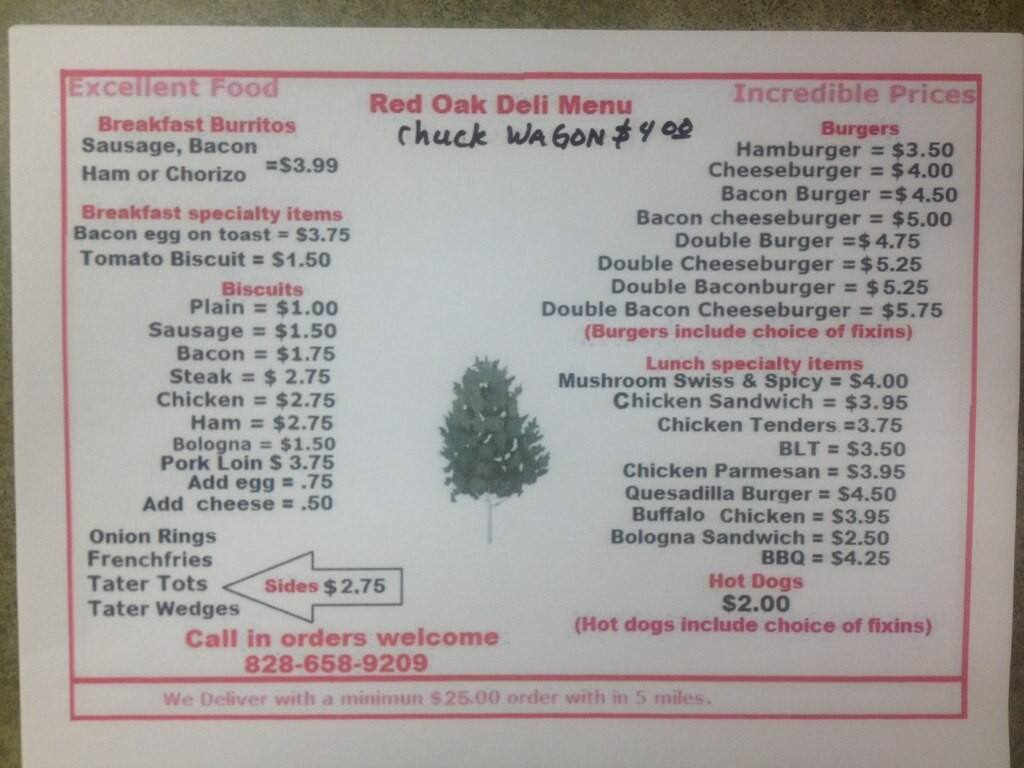 Excellent Food
Red Oak Deli Menu
Incredible Prices
Chuck WAGON $4.00
Breakfast Burritos
Sausage, Bacon
Ham or Chorizo =$3.99
Breakfast specialty items
Bacon egg on toast = $3.75
Tomato Biscuit = $1.50
Biscuits
Plain = $1.00
Sausage = $1.50
Bacon = $1.75
Steak = $ 2.75
Chicken = $2.75
Ham = $2.75
Bologna = $1.50
Pork Loin $ 3.75
Add egg = .75
Add cheese = .50
Onion Rings
Frenchfries
Tater Tots
Tater Wedges
Sides $2.75
Burgers
Hamburger = $3.50
Cheeseburger = $4.00
Bacon Burger =$4.50
Bacon cheeseburger = $5.00
Double Burger =$4.75
Double Cheeseburger =$5.25
Double Baconburger = $5.25
Double Bacon Cheeseburger = $5.75
(Burgers include choice of fixins)
Lunch specialty items
Mushroom Swiss & Spicy = $4.00
Chicken Sandwich = $3.95
Chicken Tenders =3.75
BLT = $3.50
Chicken Parmesan = $3.95
Quesadilla Burger = $4.50
Buffalo Chicken = $3.95
Bologna Sandwich = $2.50
BBQ = $4.25
Hot Dogs
$2.00
(Hot dogs include choice of fixins)
Call in orders welcome
828-658-9209
We Deliver with a minimun $25.00 order with in 5 miles.